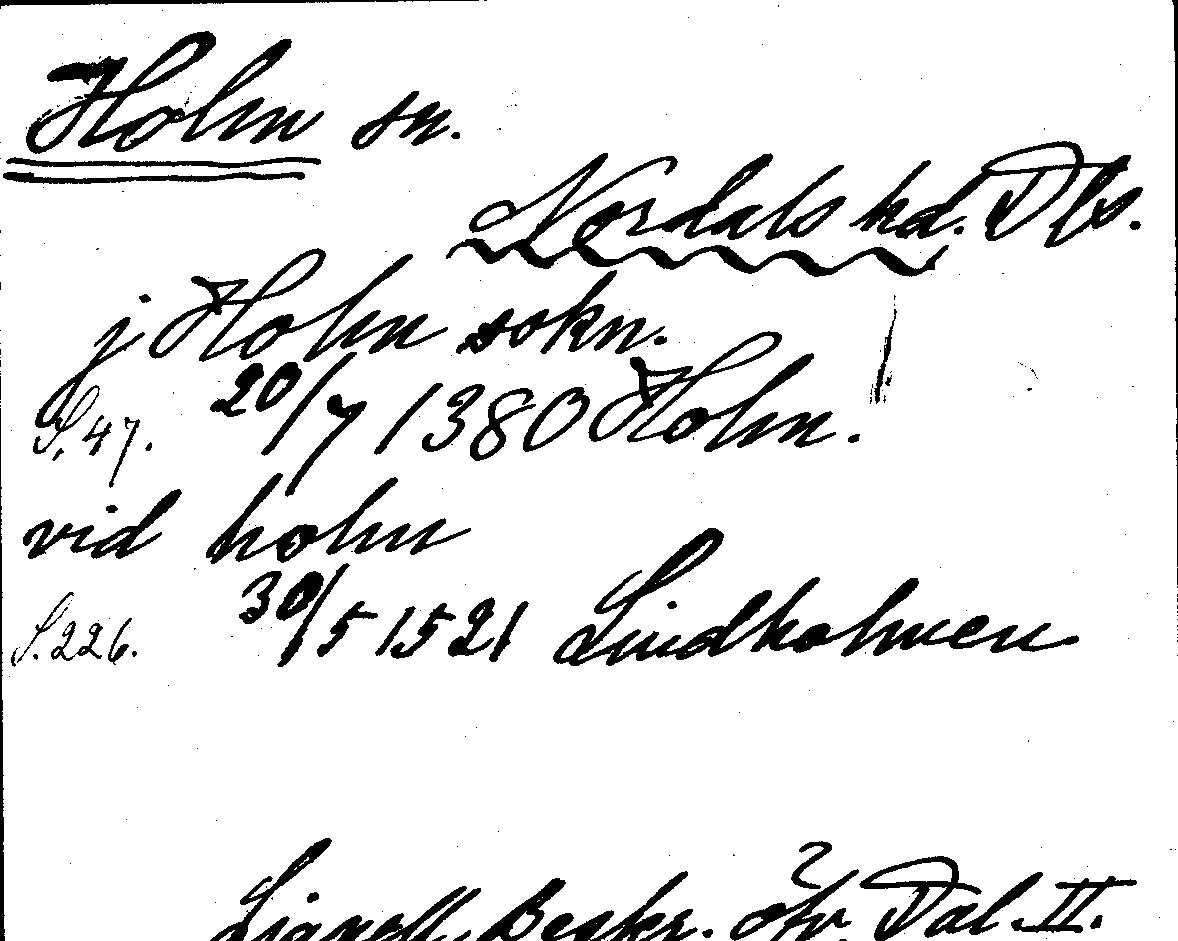 Holm sn.
Nordals hd. Dls.
j Holm sokn.
S. 47. 20/7 1380 Holm.
vid holm
S. 226. 30/5 1521 Lindholmen
Lignell, Beskr. öfv. Dal. II.